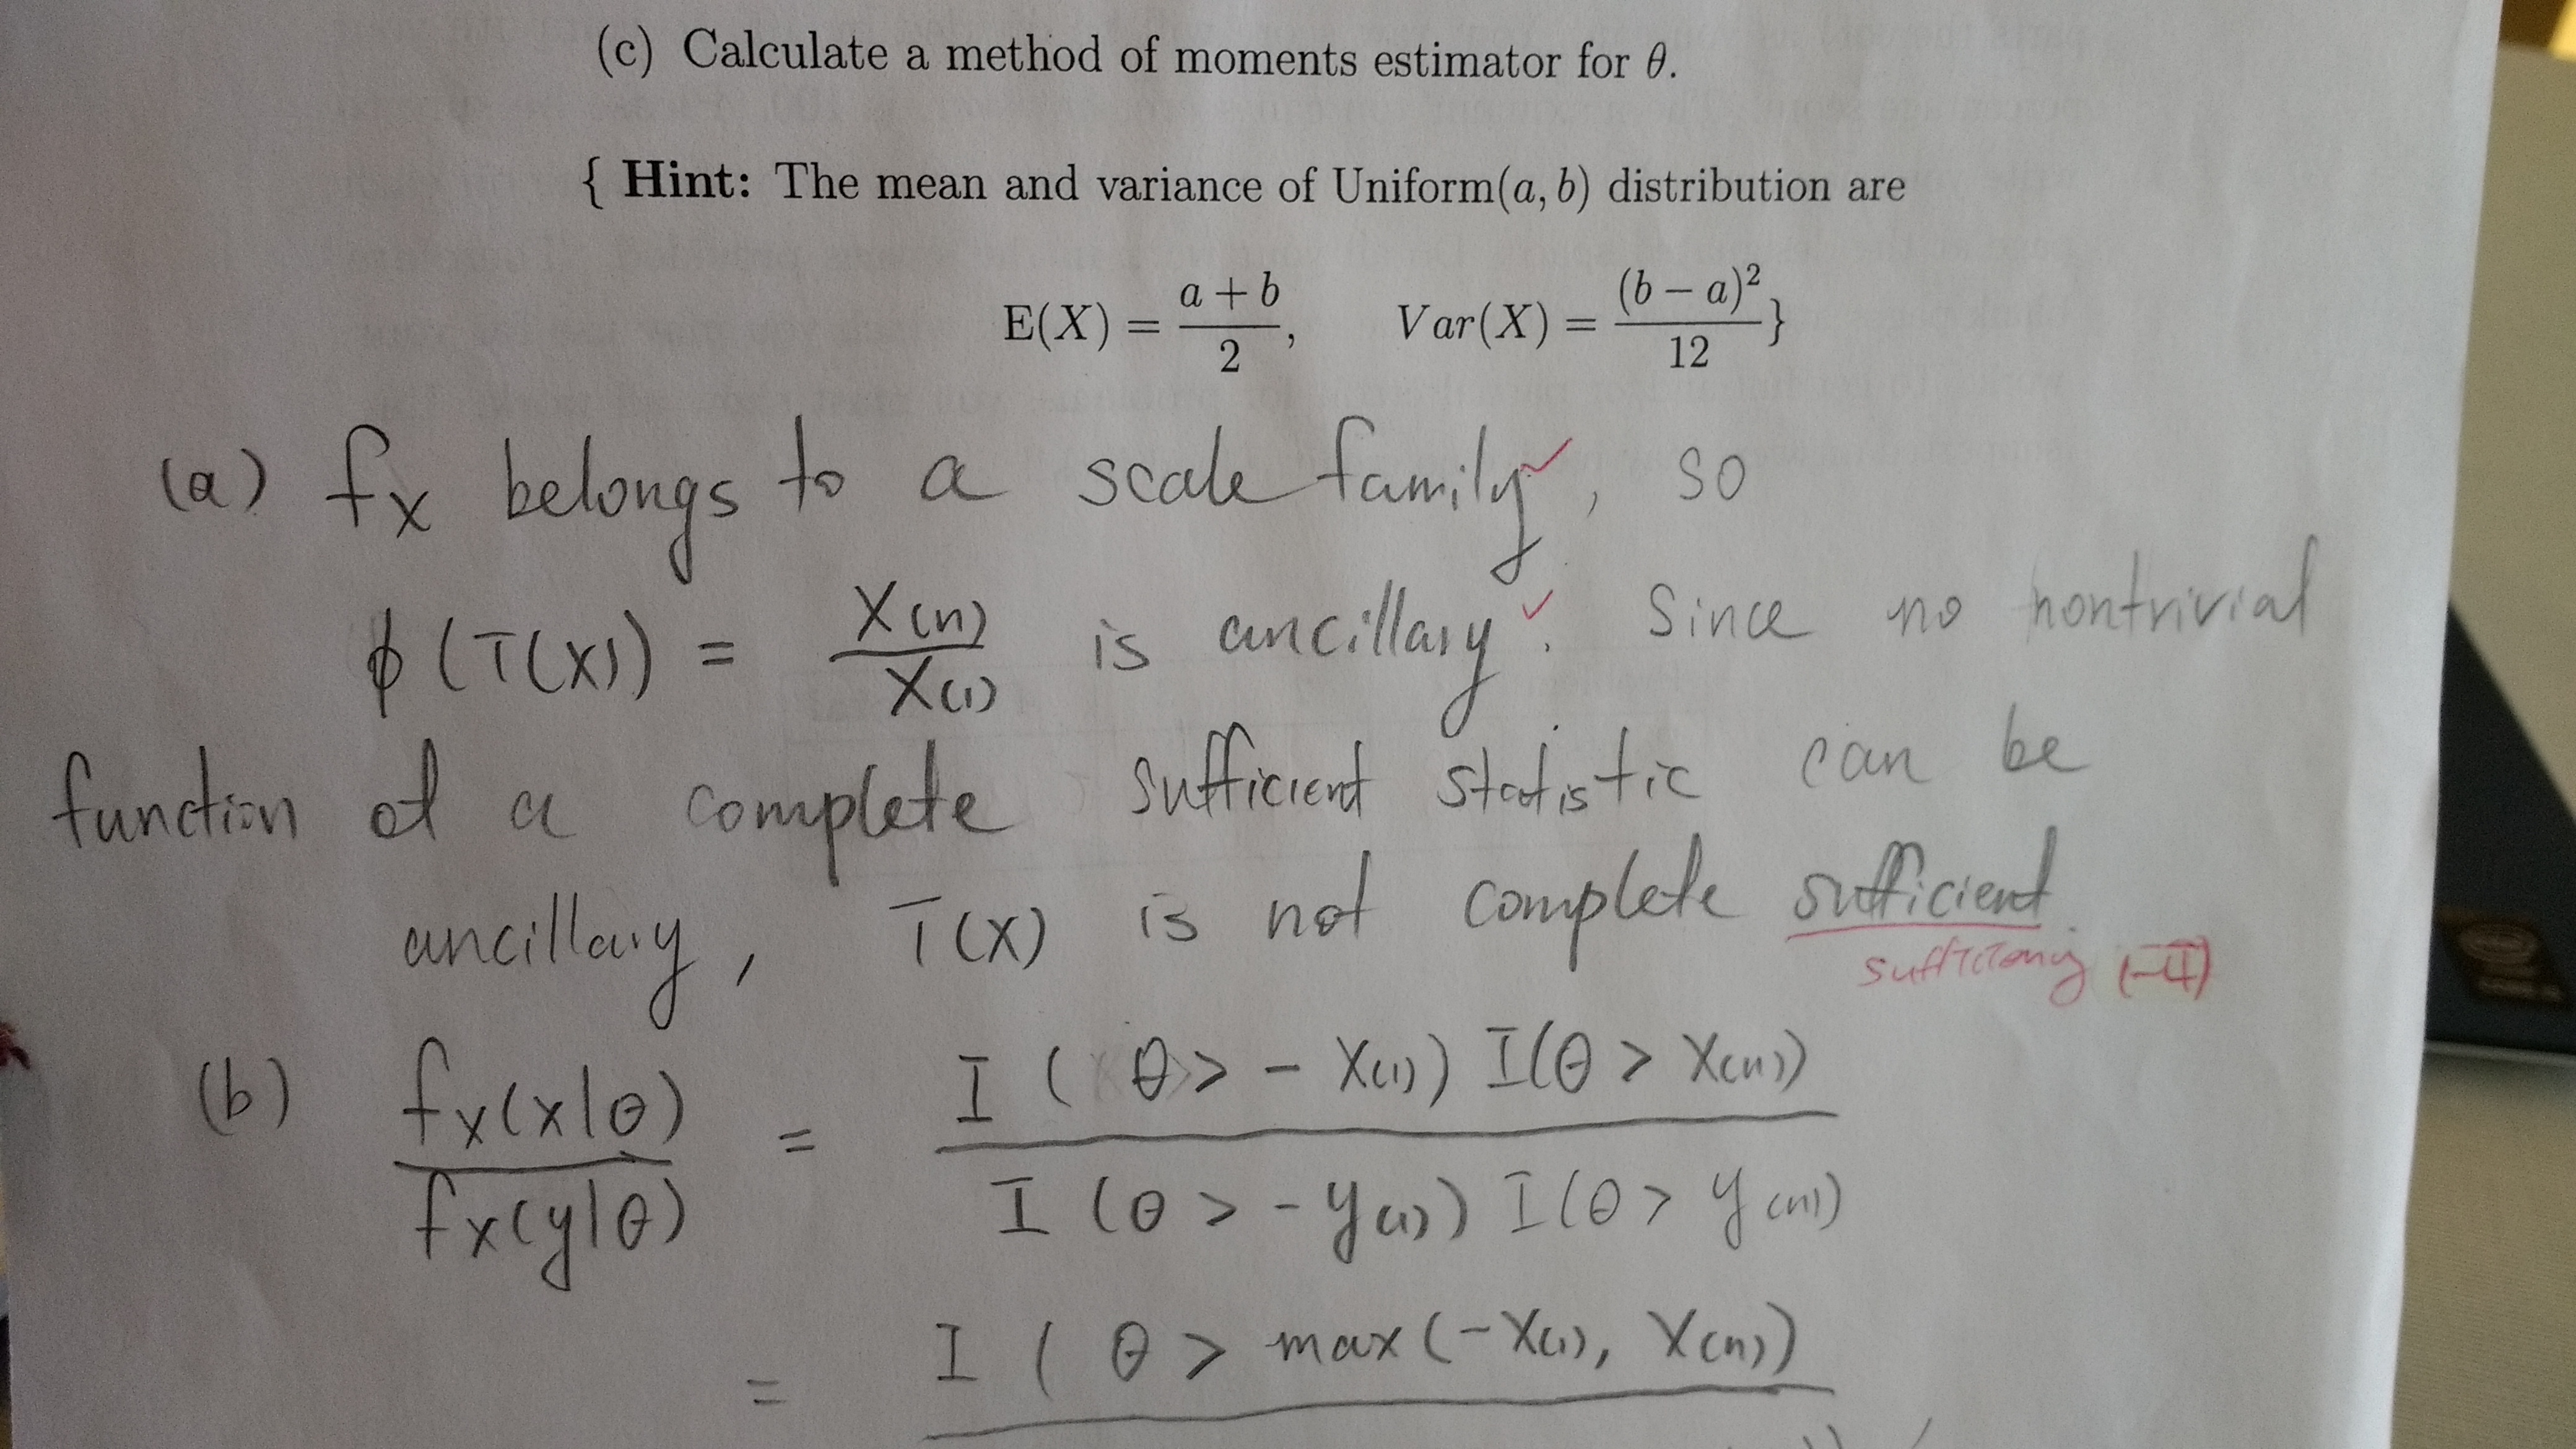 (c) Calculate a method of moments estimator for θ.
{ Hint: The mean and variance of Uniform(a, b) distribution are
E(X) = \frac{a + b}{2}, Var(X) = \frac{(b − a)^2}{12}}
(a) f_X belongs to a scale family ✓, so
ϕ(T(X)) = \frac{X_{(n)}}{X_{(1)}} is ancillary ✓. Since no nontrivial
function of a complete sufficient statistic can be
ancillary, T(X) is not complete sufficient
(-4)
(b) \frac{f_X(x|θ)}{f_X(y|θ)} = \frac{I(θ > -X_{(1)}) I(θ > X_{(n)})}{I(θ > -y_{(1)}) I(θ > y_{(n)})}
= I(θ > max(-X_{(1)}, X_{(n)})